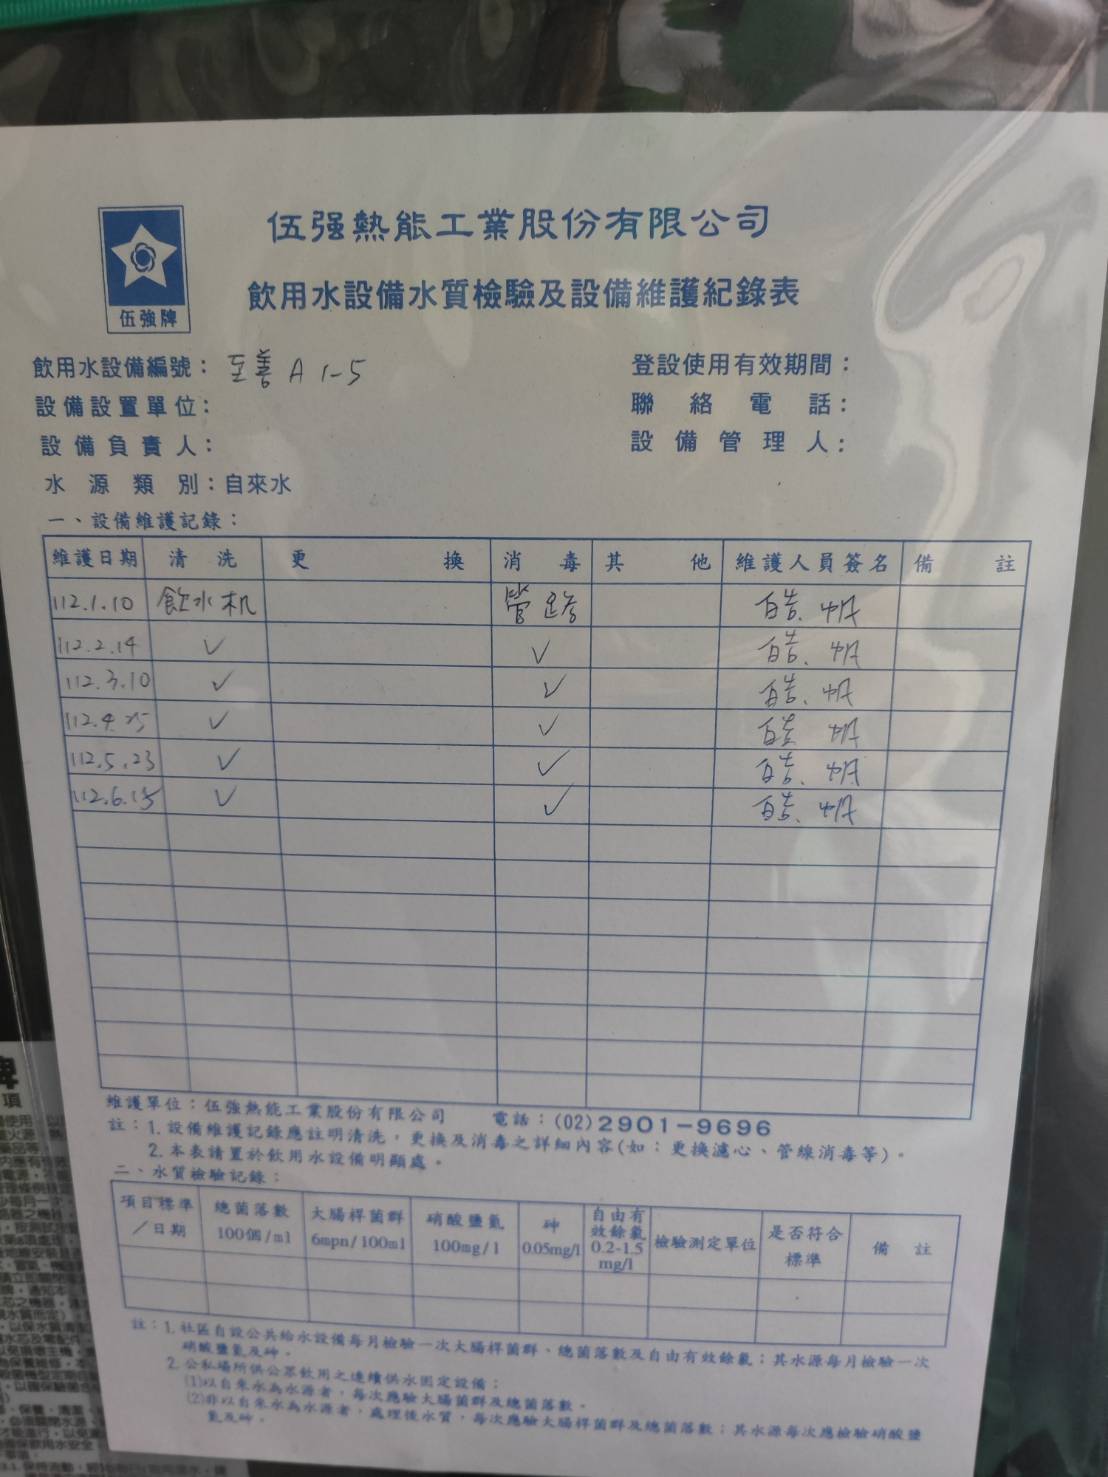 伍强熱能工業股份有限公司
飲用水設備水質檢驗及設備維護紀錄表
伍強牌
飲用水設備編號：至善A 1-5
登設使用有效期間：
設備設置單位：
聯絡電話：
設備負責人：
設備管理人：
水源類別：自來水
一、設備維護記錄：
維護日期 清洗 更換 消毒 其他 維護人員簽名 備註
112.1.10 飲水机 管路 皓.帆
112.2.14 ✓ ✓ 皓.帆
112.3.10 ✓ ✓ 皓.帆
112.4.25 ✓ ✓ 皓 帆
112.5.23 ✓ ✓ 皓.帆
112.6.15 ✓ ✓ 皓.帆
維護單位：伍強熱能工業股份有限公司 電話：(02)2901-9696
註：1.設備維護記錄應註明清洗，更換及消毒之詳細內容(如：更換濾心、管線消毒等)。
2.本表請置於飲用水設備明顯處。
二、水質檢驗記錄：
項目標準／日期 總菌落數 100個/ml 大腸桿菌群 6mpn/100ml 硝酸鹽氮 100mg/l 砷 0.05mg/l 自由有效餘氯 0.2-1.5 mg/l 檢驗測定單位 是否符合標準 備註
註：1.社區自設公共給水設備每月檢驗一次大腸桿菌群、總菌落數及自由有效餘氯；其水源每月檢驗一次
硝酸鹽氮及砷。
2.公私場所供公眾飲用之連續供水固定設備：
(1)以自來水為水源者，每次應驗大腸菌群及總菌落數。
(2)非以自來水為水源者，處理後水質，每次應驗大腸桿菌群及總菌落數；其水源每次應檢驗硝酸鹽
氮及砷。